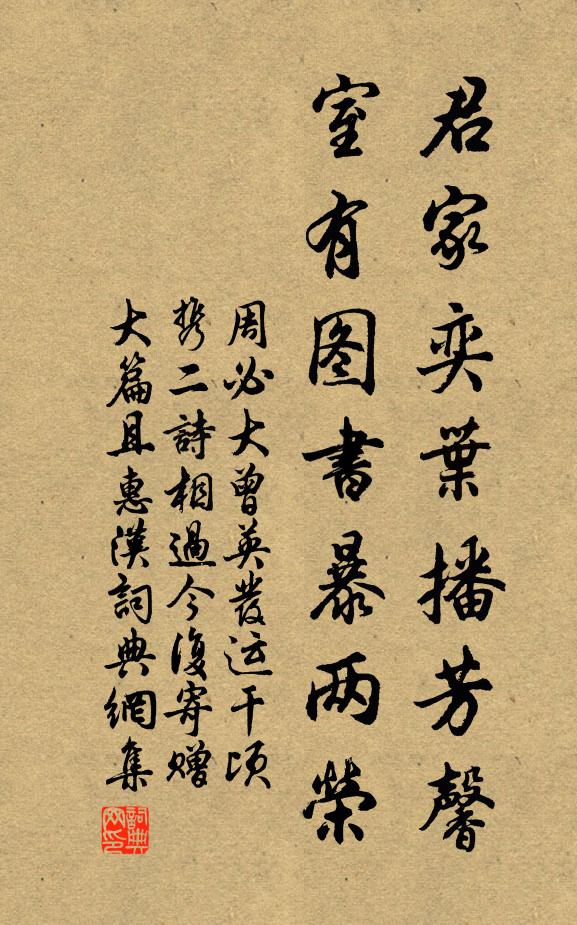 君家奕葉播芳馨
室有图書暴两榮
周必大曾英發运干頃
携二詩相過今復寄贈
大篇且惠漢詞典網集
詞典
网印